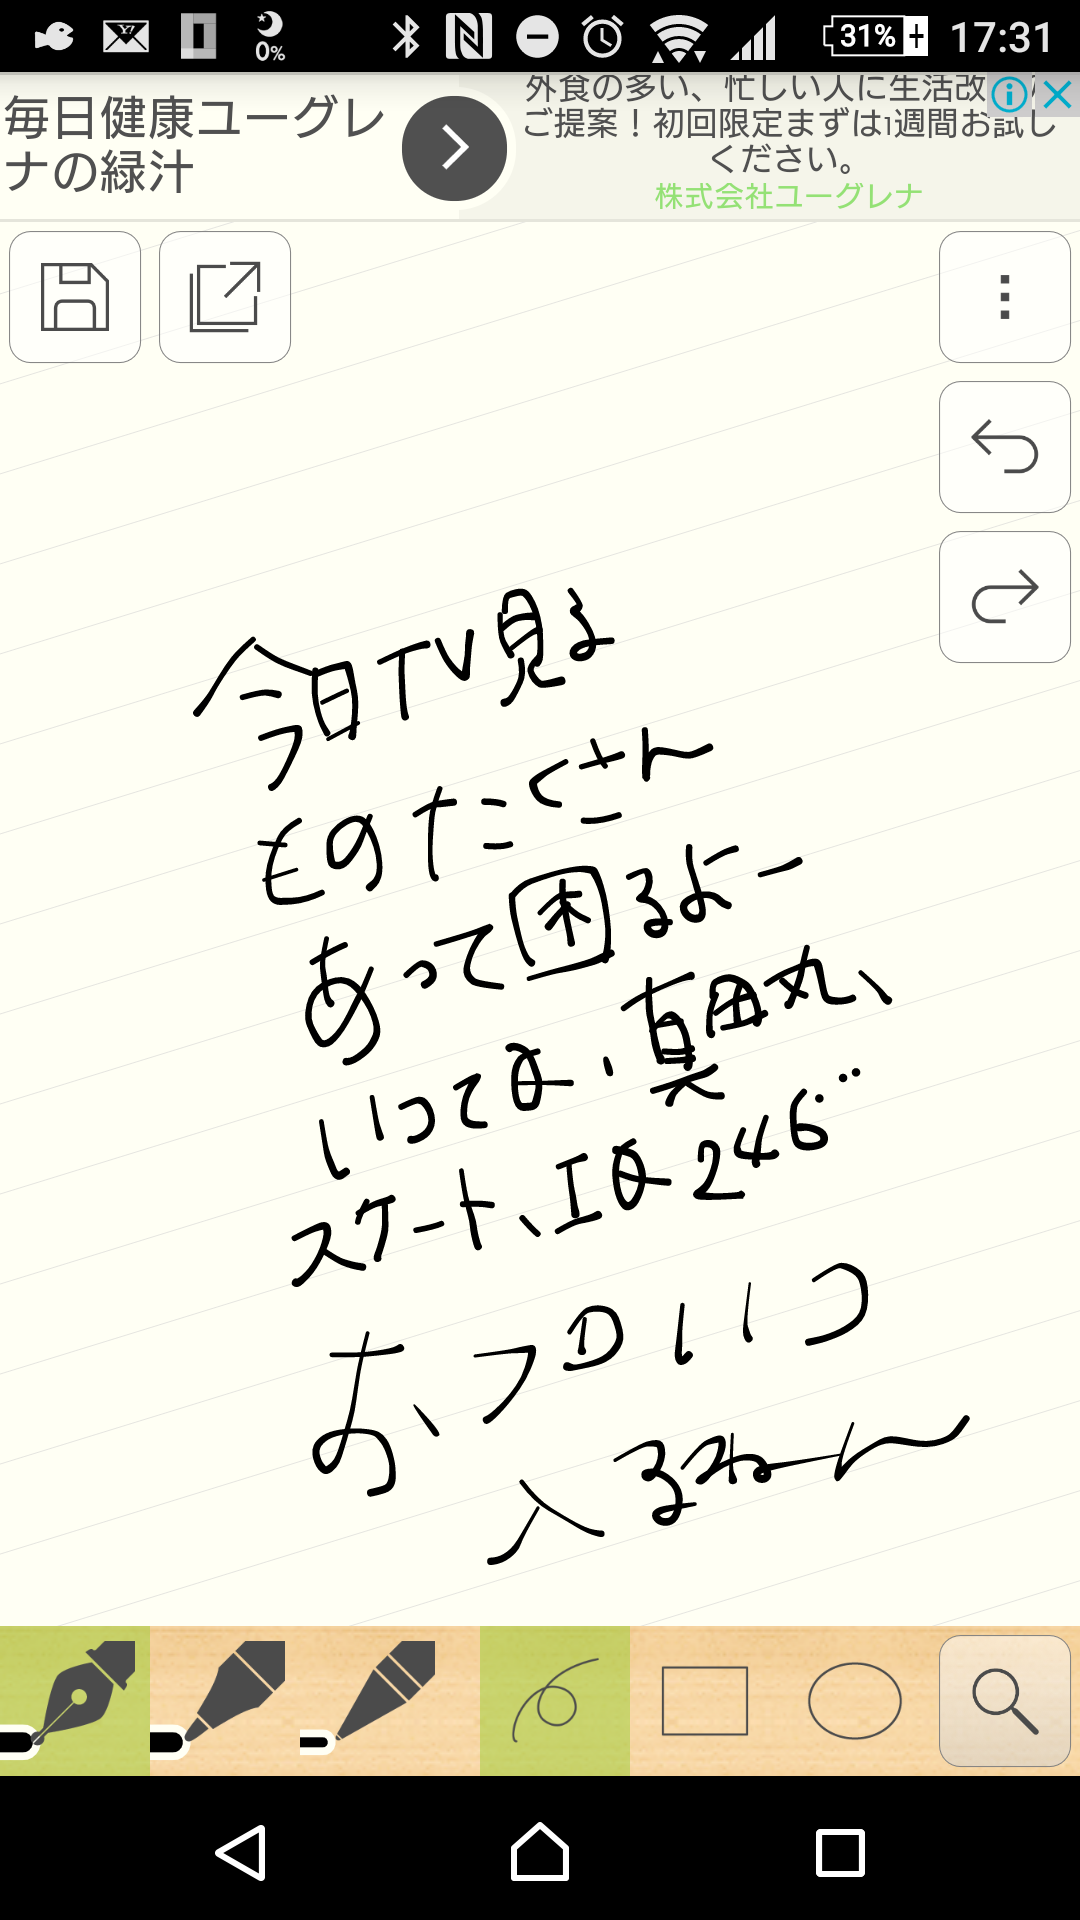 0%
31%
17:31
毎日健康ユーグレ
ナの緑汁
外食の多い、忙しい人に生活改
ご提案！初回限定まずは1週間お試し
ください。
株式会社ユーグレナ
今日TV見る
ものたくさん
あって困るよー
いってQ、真田丸、
スケート、IQ246…
おフロいつ
入るねーん